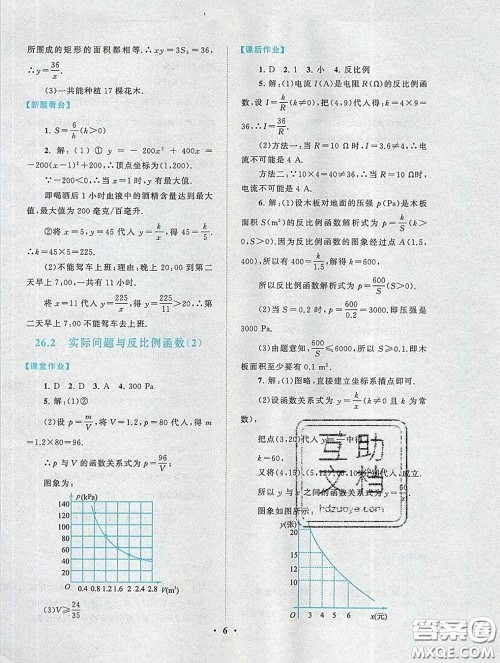 所围成的矩形的面积都相等.∴xy=3S₁=36,
∴y=36/x.
(3)一共能种植 17 棵花木.
【新题看台】
1. S=6/h(h>0)
2. 解:(1)① y=-200x²+400x=
-200(x-1)²+200,∴顶点坐标为(1,200).
∵-200<0,∴当 x=1 时,y 有最大值.
即喝酒后 1 小时血液中的酒精含量达到最
大值,最大值为 200 毫克/百毫升.
②将 x=5,y=45 代入 y=k/x,得 45=k/5,
∴k=45×5=225.
(2)不能驾车上班;理由:晚上 20:00 到第二
天早上 7:00,一共有 11 小时.
将 x=11 代入 y=225/x,得 y=225/11>20.∴第
二天早上 7:00 不能驾车去上班.
26.2 实际问题与反比例函数(2)
【课堂作业】
1. D 2. D 3. A 4. 300 Pa
5. 解:(1)②
(2)设 p=m/V,将 V=1.2,p=80 代入,得 m
=1.2×80=96.
∴p 与 V 的函数关系式为 p=96/V.
图象为:
p(kPa)
140
120
100
80
60
40
20
0.4 0.8 1.2 1.6 2 2.4 2.8 V(m³)
(3)V≥24/35
【课后作业】
1. D 2. 1 3. 小 4. 反比例
5. 解:(1)电流 I(A)是电阻 R(Ω)的反比例函
数,设 I=k/R(k≠0).把(4,9)代入得:k=4×9=
36,∴I=36/R.
(2)方法一:当 R=10 Ω时,I=3.6≠4,∴电
流不可能是 4 A.
方法二:10×4=40≠36,∴当 R=10 Ω 时,
电流不可能是 4 A.
6. 解:(1)设木板对地面的压强 p(Pa)是木板
面积 S(m²)的反比例函数解析式为 p=k/S(k>
0,S>0).因为反比例函数的图象经过点 A(1.5,
400),所以将其代入得:400=k/1.5,解得 k=600.
所以反比例函数解析式为 p=600/S(S>0).
(2)当 S=0.2 时,p=600/0.2=3000,即压强是
3000 Pa.
(3)由题意知,600/S≤6000,∴S≥0.1.即木板
面积至少要有 0.1 m².
7. 解:(1)图略;直接建立坐标系描点即可.
(2)设函数关系式为 y=k/x(k≠0 且 k 为常
数),
把点(3,20)代入 中得,
k=60,
又将(4,15),(5,12),(6,10)代入 成立.
所以 y 与 x 之间的函数关系式为 y=60/x.
图象如图所示.
y(张)
20
15
10
5
0 3 4 5 6 x(元)
互助
文档
hdzuoye.com
• 6 •
答案圈
MXQE.COM